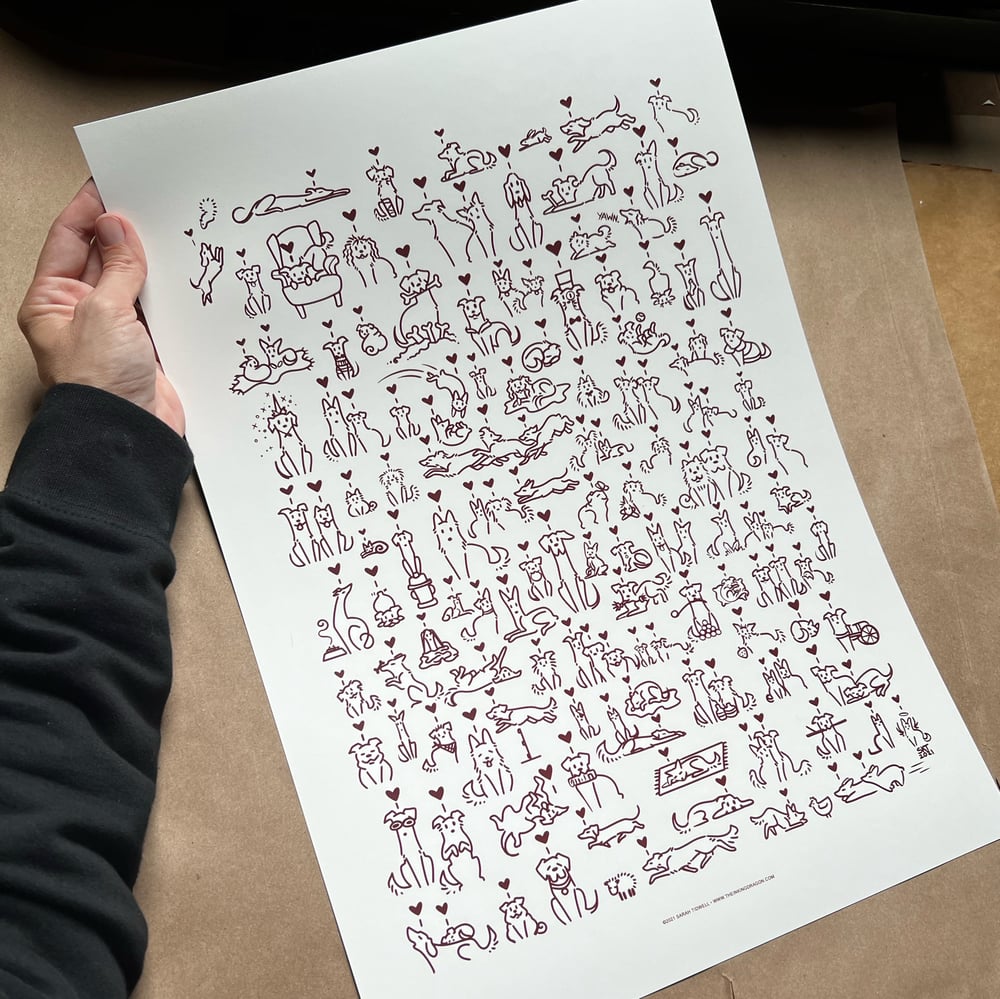 YAWN.
SKT
2021
©2021 SARAH TIDWELL • WWW.THEINKINGDRAGON.COM